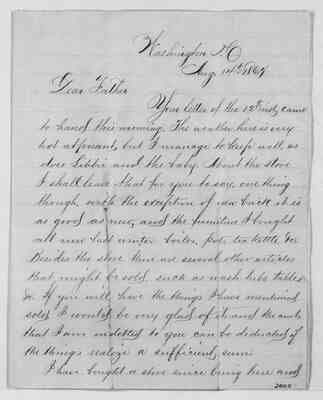 Washington D.C
Aug 14th 1864
Dear Father
Your letter of the 12th inst. came
to hand this morning. The weather here is very
hot at present, but I manage to keep well, as
does Libbie and the baby. About the stove
I shall leave that for you to say, one thing
though, with the exception of one it is
as good as new, and the furniture I bought
all new last winter boiler, pots, tea kettle, &c
Besides the stove there are several other articles
that might be sold, such as wash tubs tables
&c. If you will have the things I have mentioned
sold I would be very glad of it and the amt.
that I am indebted to you can be deducted if
the things realize a sufficient sum.
I have bought a stove since being here and